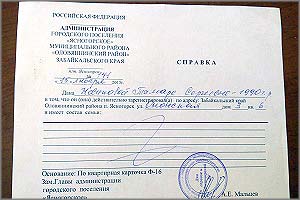 РОССИЙСКАЯ ФЕДЕРАЦИЯ
АДМИНИСТРАЦИЯ
ГОРОДСКОГО ПОСЕЛЕНИЯ
«ЯСНОГОРСКОЕ»
МУНИЦИПАЛЬНОГО РАЙОНА
«ОЛОВЯННИНСКИЙ РАЙОН»
ЗАБАЙКАЛЬСКОГО КРАЯ
СПРАВКА
пгт. Ясногорск
января
Дана 1990
в том,что он (она) действительно зарегистрирован(а) по адресу: Забайкальский край
Оловяннинского района п. Ясногорск ул. дом 3 кв 6
и имеет состав семьи:
Основание: По квартирная карточка Ф-16
Зам.Главы администрации
городского поселения
«Ясногорское» А.Е. Мальцев